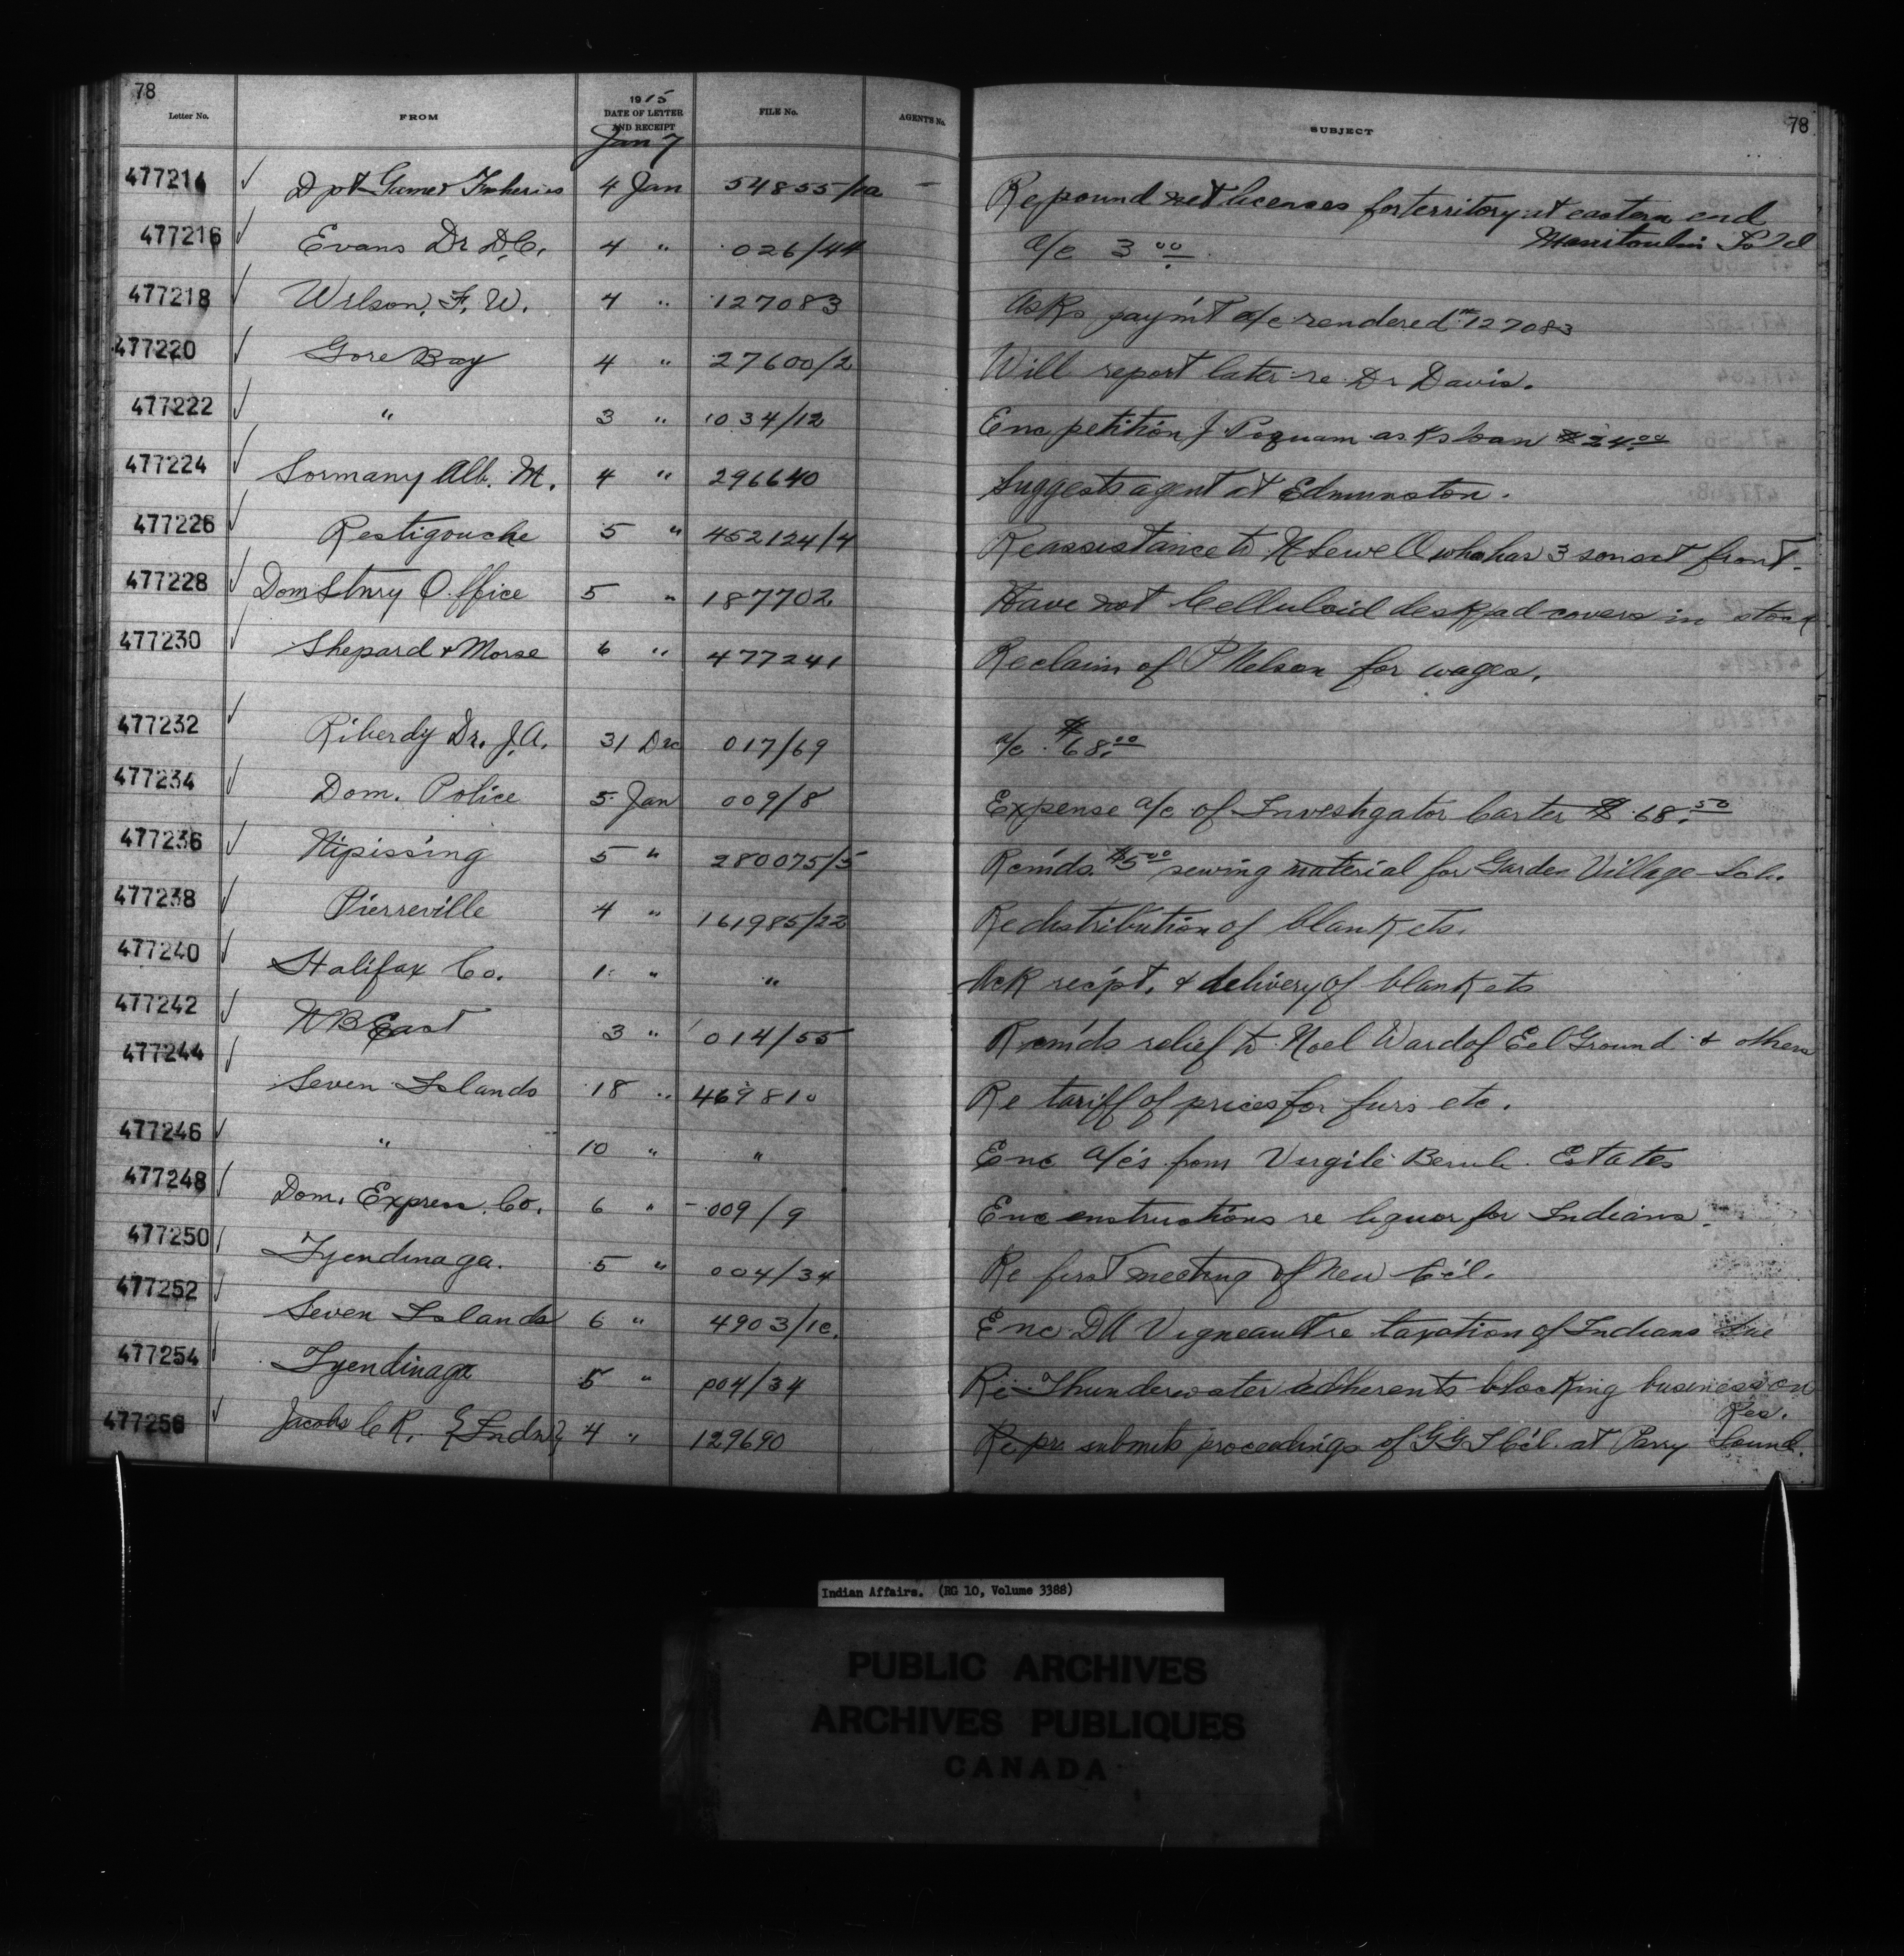 78
78
Letter No. FROM 1915 DATE OF LETTER AND RECEIPT FILE No. AGENT'S No. SUBJECT
Jan 7
477214 ✓ Dpt Game & Fisheries 4 Jan 54855/10a — Re pound net licences for territory at eastern end
Manitoulin Isld
477216 ✓ Evans Dr D.C. 4 " 026/44 a/c 3 00
477218 ✓ Wilson, F. W. 4 " 127083 Asks paym't a/c rendered 127083
477220 ✓ Gore Bay 4 " 27600/2 Will report later re Dr Davis.
477222 ✓ " 3 " 1034/12 Enc petition J asks loan $24.00
477224 ✓ Sormany Alb. M. 4 " 296640 Suggests agent at Edmunston.
477226 ✓ Restigouche 5 " 452124/4 Re assistance to Sewell who has 3 sons at front.
477228 ✓ Dom Stnry Office 5 " 187702 Have not Celluloid desk pad covers in stock
477230 ✓ Shepard & Morse 6 " 477241 Re claim of P Nelson for wages.
477232 ✓ Riberdy Dr. J.A. 31 Dec 017/69 a/c $68.00
477234 ✓ Dom. Police 5 Jan 009/8 Expense a/c of Investigator Carter $68.50
477236 ✓ Nipissing 5 " 280075/5 Rem'ds $5 00 sewing material for Garden Village Sch.
477238 ✓ Pierreville 4 " 161985/22 Re distribution of blankets.
477240 ✓ Halifax Co. 1 " " Ack rec'pt. & delivery of blankets
477242 ✓ N B East 3 " 014/55 Rcm'ds relief to Noel Ward of Eel Ground & others
477244 ✓ Seven Islands 18 " 469810 Re tariff of prices for furs etc.
477246 ✓ " 10 " " Enc a/c's from Virgile Estates
477248 ✓ Dom. Express Co. 6 " 009/9 Enc instructions re liquor for Indians.
477250 Tyendinaga. 5 " 004/34 Re first meeting of New C'cl.
477252 ✓ Seven Islands 6 " 4903/1c. Enc D A Vigneault re taxation of Indians
477254 Tyendinaga 5 " 004/34 Re Thunderwater adherents blocking business on
Res.
477256 ✓ Jacobs C R. {Indn} 4 " 129690 submits proceedings of G G I C'cl. at Parry Sound.
Indian Affairs. (RG 10, Volume 3388)
PUBLIC ARCHIVES
ARCHIVES PUBLIQUES
CANADA